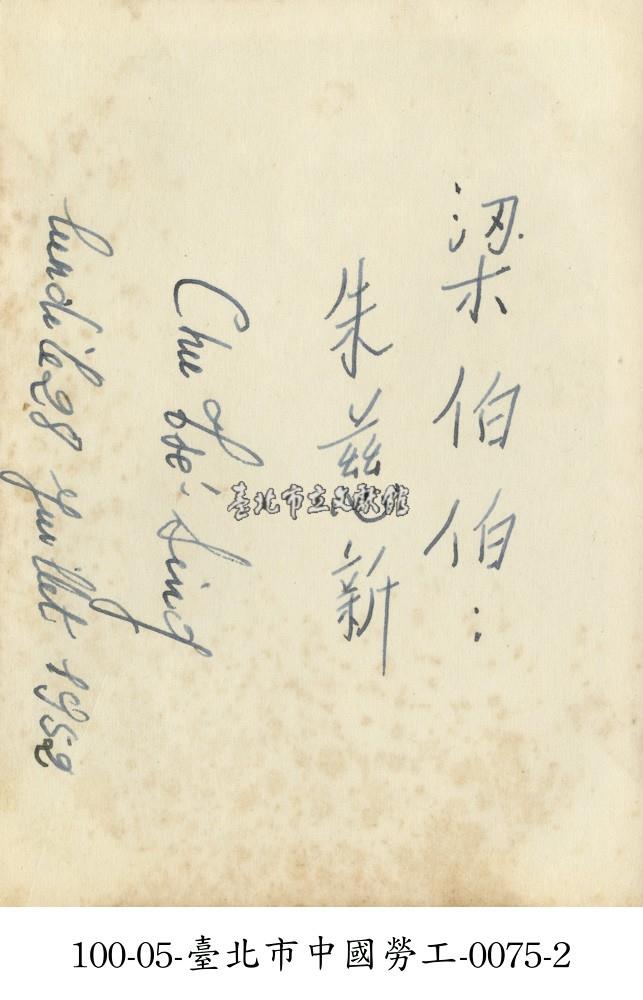 梁伯伯：
朱慈新
Chu Tsé-Sing
lundi le 28 juillet 1952
臺北市立文獻館
100-05-臺北市中國勞工-0075-2